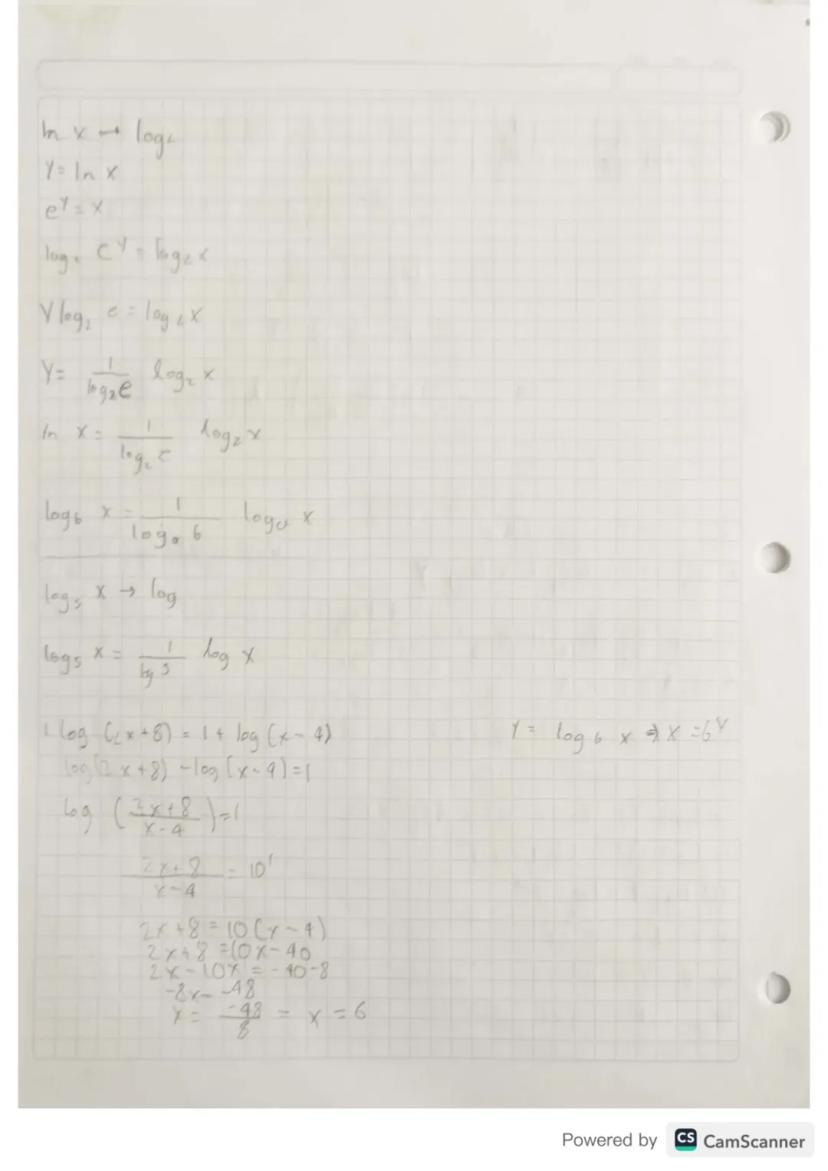 ln x → log₂
Y = ln x
e^Y = x
log₂ e^Y = log₂ x
Y log₂ e = log₂ x
Y = 1/(log₂ e) log₂ x
ln x = 1/(log₂ e) log₂ x
log_b x = 1/(log_a b) log_a x
log₅ x → log
log₅ x = 1/(log 5) log x
1. log (2x+8) = 1 + log (x-4)
Y = log_b x ⇒ x = b^Y
log (2x+8) - log (x-4) = 1
log ((2x+8)/(x-4)) = 1
(2x+8)/(x-4) = 10¹
2x+8 = 10(x-4)
2x+8 = 10x-40
2x-10x = -40-8
-8x = -48
x = -48/8 = x = 6
Powered by CS CamScanner